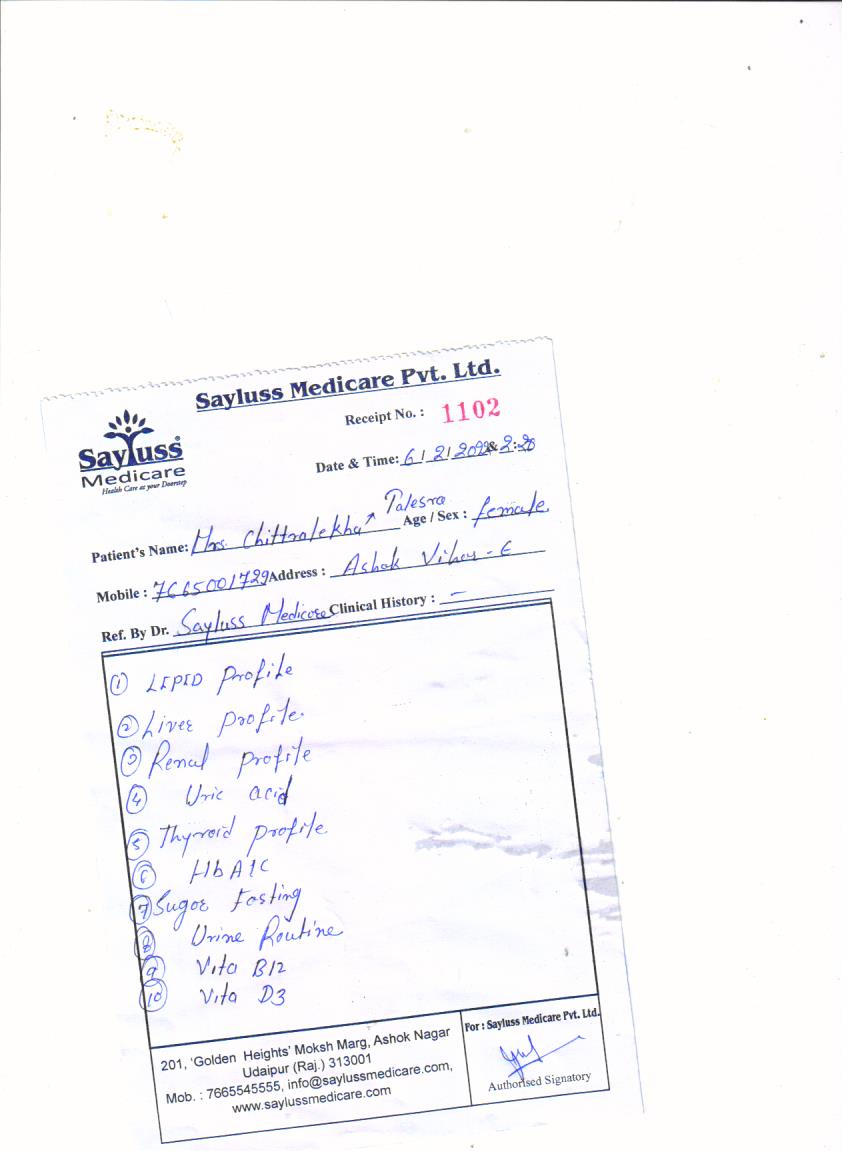 Sayluss Medicare Pvt. Ltd.
Sayluss
Medicare
Health Care at your Doorstep
Receipt No. : 1102
Date & Time: 6/2/2022 & 2:20
Patient's Name: Mrs. Chittralekha Palesra
Age / Sex : female
Mobile : 7665001729 Address : Ashok Vihar - E
Ref. By Dr. Sayluss Medicare Clinical History : -
① LIPID Profile
② Liver Profile
③ Renal profile
④ Uric acid
⑤ Thyroid Profile
⑥ HbA1C
⑦ Sugar Fasting
⑧ Urine Routine
⑨ Vita B12
⑩ Vita D3
201, 'Golden Heights' Moksh Marg, Ashok Nagar
Udaipur (Raj.) 313001
Mob. : 7665545555, info@saylussmedicare.com,
www.saylussmedicare.com
For : Sayluss Medicare Pvt. Ltd.
Authorised Signatory